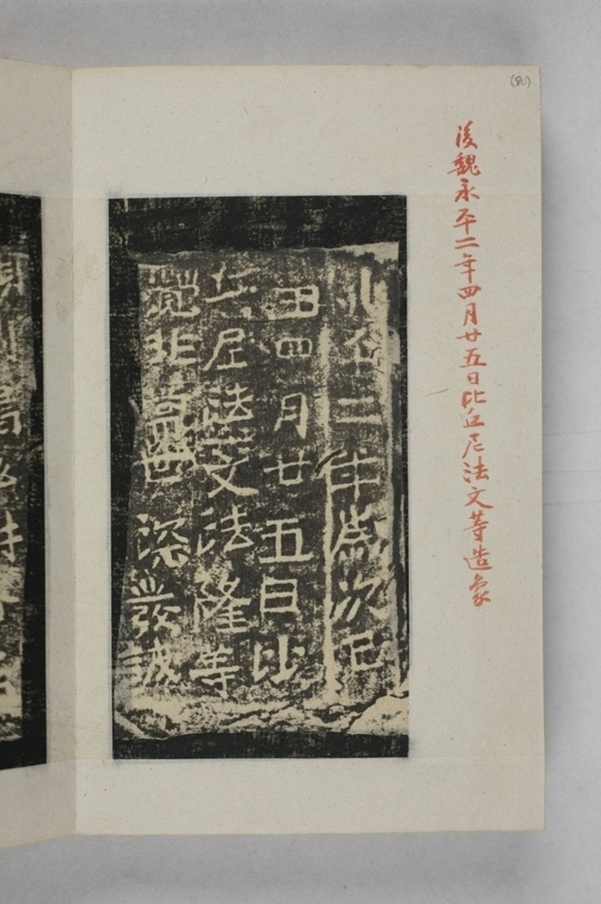 (80)
後魏永平二年四月廿五日比丘尼法文等造象
永平二年歲次己
丑四月廿五日比
丘尼法文法隆等
覺非常世深發誠